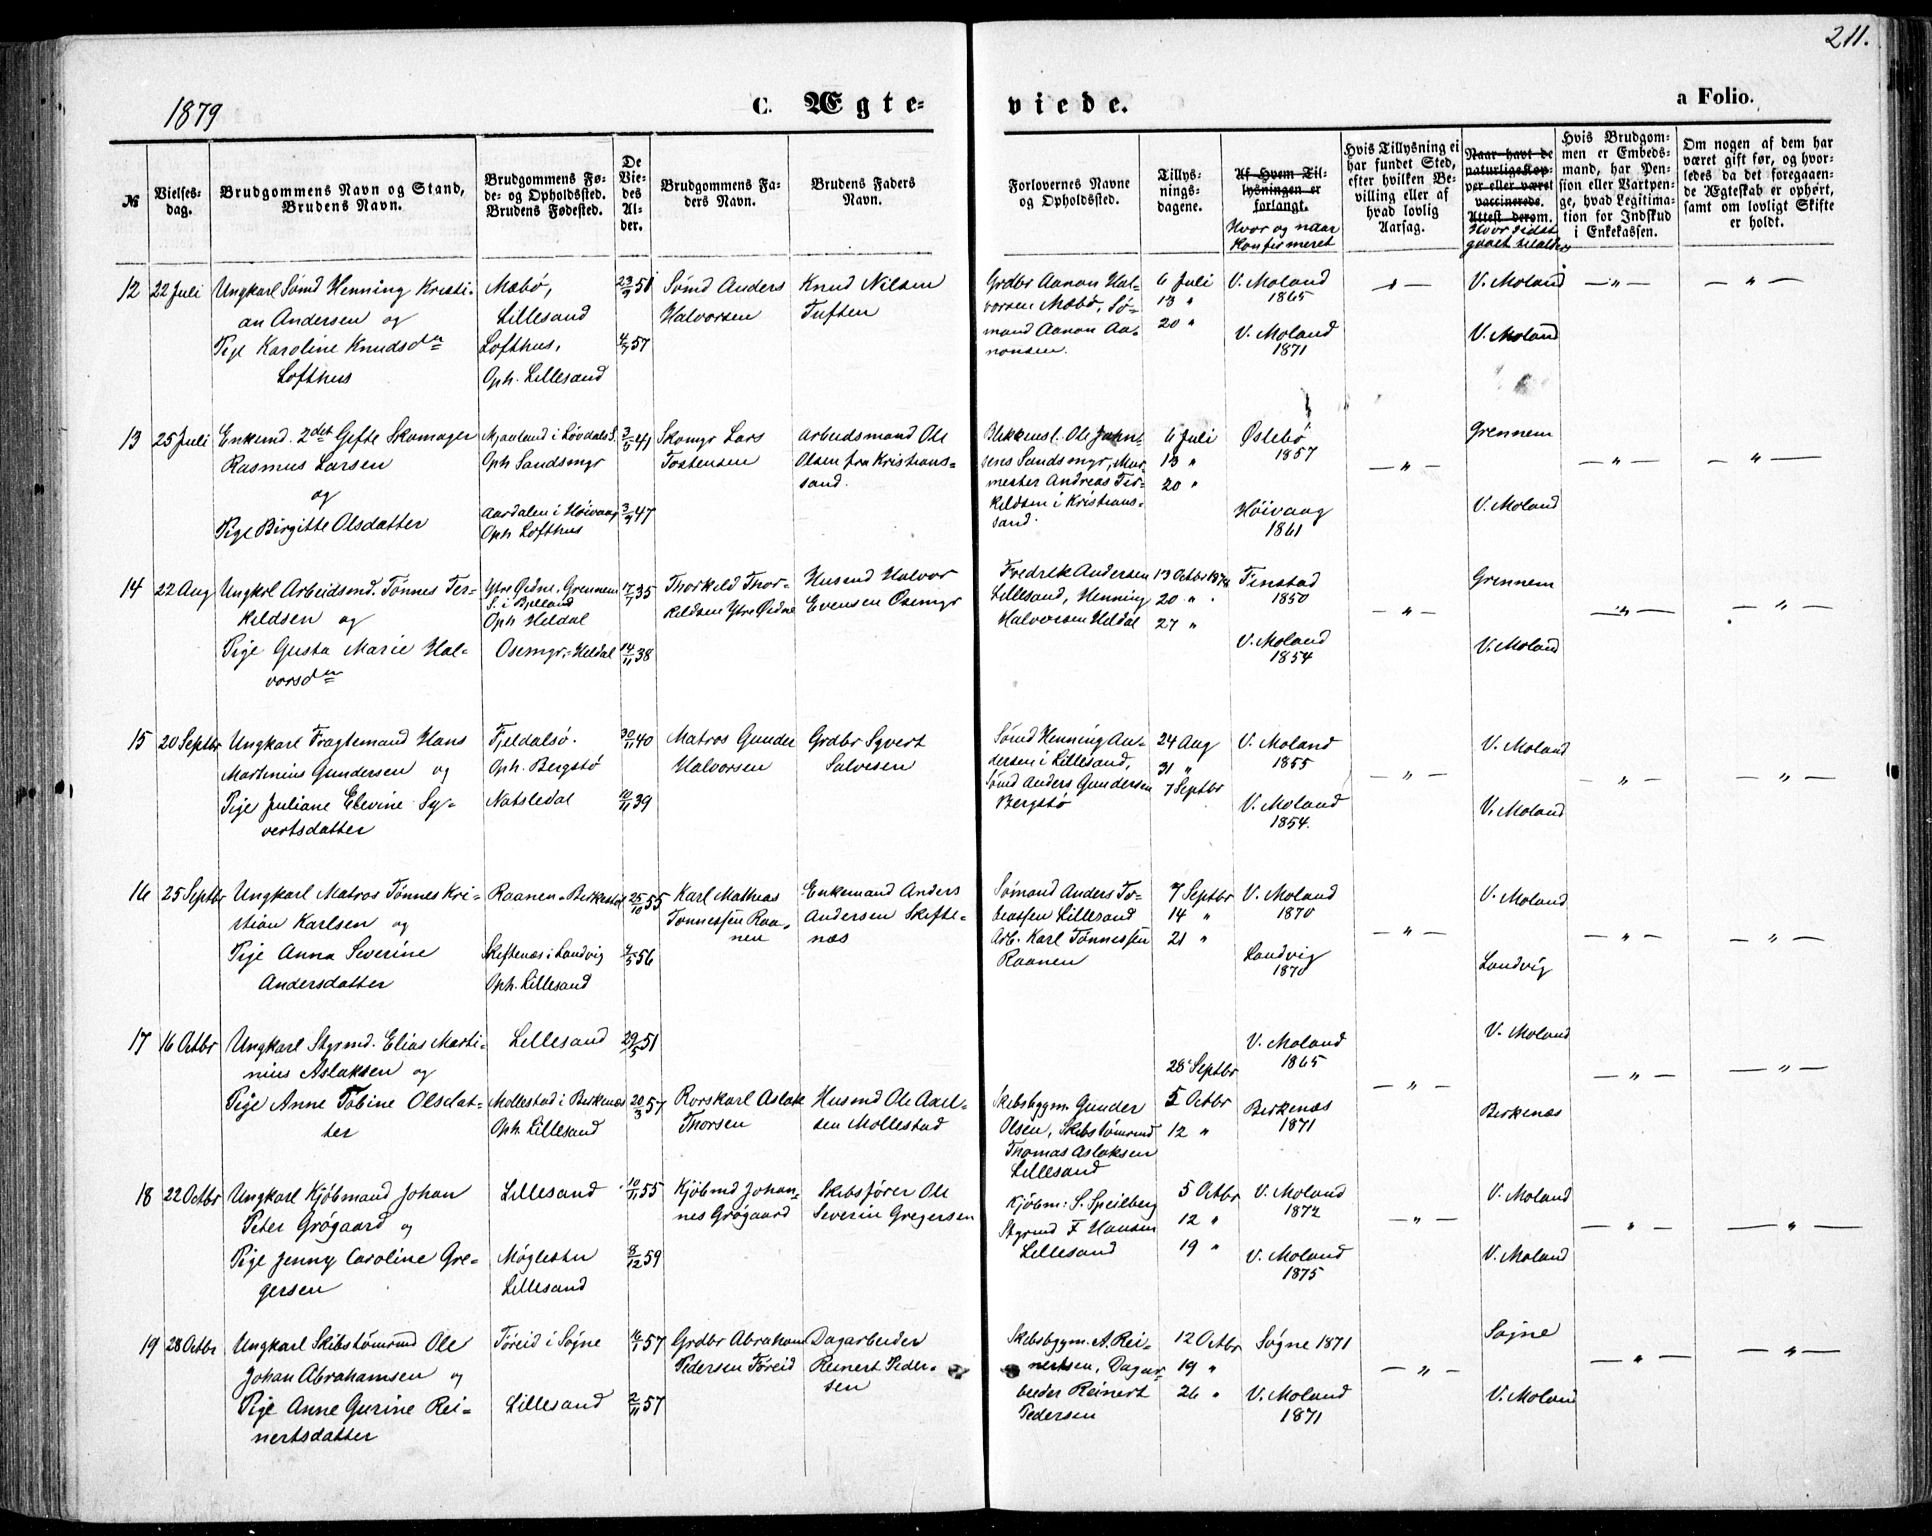 211.
1879
C. Ægte-
viede.
a Folio.
№
Vielses-
dag.
Brudgommens Navn og Stand,
Brudens Navn.
Brudgommens Fø-
de- og Opholdssted.
Brudens Fødested.
De
Vie-
des
Al-
der.
Brudgommens Fa-
ders Navn.
Brudens Faders
Navn.
Forlovernes Navne
og Opholdssted.
Tillys-
nings-
dagene.
Af Hvem Til-
lysningen er
forlangt.
Hvor og naar
Konfirmeret
Hvis Tillysning ei
har fundet Sted,
efter hvilken Be-
villing eller af
hvad lovlig
Aarsag.
Naar havt de
naturlige Kop-
per eller været
vaccinerede.
Attest derom.
Hvor sidst
gaaet til alters
Hvis Brudgom-
men er Embeds-
mand, har Pen-
sion eller Vartpen-
ge, hvad Legitima-
tion for Indskud
i Enkekassen.
Om nogen af dem har
været gift før, og hvor-
ledes da det foregaaen-
de Ægteskab er ophørt,
samt om lovligt Skifte
er holdt.
12 22 Juli Ungkarl Sømd Henning Kristi-
an Andersen og
Pige Karoline Knudsdtr
Lofthus
Mæbø,
Lillesand
Lofthus,
Oph. Lillesand
51
4/7 57
Sømd Anders
Halvorsen
Knud Nilsen
Tuften
Grdbr Aanon Hal-
vorsen Mæbø, Sø-
mand Aanon Aa-
nonsen.
6 Juli
13 "
20 "
V. Moland
1865
V. Moland
1871
— " —
V. Moland
V. Moland
— " —
— " —
13 25 Juli Enkemd. 2det Gifte Skomager
Rasmus Larsen
og
Pige Birgitte Olsdatter
Mjaaland i Løvdals S.
Oph Sandsmyr
Aardalen i Høivaag
Oph Lofthus
3/5 41
47
Skomgr Lars
Tostensen
Arbeidsmand Ole
Olsen fra Kristians-
sand.
Blikkensl. Ole John-
sens Sandsmyr, Mur-
mester Andreas Ter-
keldsen i Kristians-
sand.
6 Juli
13 "
20 "
Øslebø
1857
Høivaag
1861
— " —
Grennem
V. Moland
— " —
— " —
14 22 Aug Ungkrl Arbeidsmd. Tønnes Ter-
keldsen og
Pige Gusta Marie Hal-
vorsdtr
Ytre Øidne, Grennem
S. i Bjelland
Oph Heldal
Osemyr, Heldal
17/1 35
14/11 38
Thorkeld Thor-
keldsen Ytre Øidne
Husmd Halvor
Evensen Osemyr
Fredrik Andersen
Lillesand, Henning
Halvorsen Heldal
13 Octbr 1878
20 "
27 "
Finstad
1850
V. Moland
1854
— " —
Grennem
V. Moland
— " —
— " —
15 20 Septbr Ungkarl Fragtemand Hans
Martinius Gundersen og
Pige Juliane Elevine Sy-
vertsdatter
Fjeldalsø.
Oph. Bergstø
Natsledal
30/11 40
10/11 39
Matros Gunder
Halvorsen
Grdbr Syvert
Salvesen
Sømd Henning An-
dersen i Lillesand,
Sømd Anders Gundersen
Bergstø
24 Aug
31 "
7 Septbr
V. Moland
1855
V. Moland
1854.
— " —
V. Moland
V. Moland
— " —
— " —
16 25 Septbr Ungkarl Matros Tønnes Kri-
stian Karlsen og
Pige Anna Severine
Andersdatter
Raanen Berkestad
Skiftenæs i Landvig
Oph. Lillesand
25/10 55
4/5 56
Karl Mathias
Tønnessen Raa-
nen
Enkemand Anders
Andersen Skifte-
næs
Sømand Anders To-
biassen Lillesand
Arb. Karl Tønnessen
Raanen
7 Septbr
14 "
21 "
V. Moland
1870
Landvig
1870
— " —
V. Moland
Landvig
— " —
— " —
17 16 Octbr Ungkarl Styrmd. Elias Marti-
nius Aslaksen og
Pige Anne Tobine Olsdat-
ter
Lillesand
Mollestad i Berkenæs
Oph. Lillesand
29/5 51
20/3 57
Rorskarl Aslak
Thorsen
Husmd Ole Axel-
sen Mollestad
Skibsbygm. Gunder
Olsen, Skibstømrmd
Thomas Aslaksen
Lillesand
28 Septbr
5 Octbr
12 "
V. Moland
1865
Birkenæs
1871
— " —
V. Moland
Birkenæs
— " —
— " —
18 22 Octbr Ungkarl Kjøbmand Johan
Peter Grøgaard og
Pige Jenny Caroline Gre-
gersen
Lillesand
Møglestu
Lillesand
10/11 55
8/12 59
Kjøbmd Johan-
nes Grøgaard
Skibsfører Ole
Severin Gregersen
Kjøbm: S. Speilberg
Styrmd F Hansen
Lillesand
5 Octbr
12 "
19 "
V. Moland
1872
V. Moland
1875
— " —
V. Moland
V. Moland
— " —
— " —
19 28 Octbr Ungkarl Skibstømrmd Ole
Johan Abrahamsen og
Pige Anne Gurine Rei-
nertsdatter
Tøreid i Søgne
Lillesand
16/1 57
2/11 57
Grdbr Abraham
Pedersen Tøreid
Dagarbeider
Reinert Peder-
sen
Skibsbygm. A. Rei-
nertsen, Dagar-
beider Reinert
Pedersen
12 Octbr
19 "
26 "
Søgne 1871
V. Moland
1871
— " —
Søgne
V. Moland
— " —
— " —